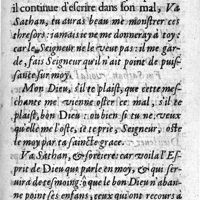 il continue d'escrire dans son mal, Va
Sathan, tu auras beau me monstrer ces
thresors: iamais ie ne me donneray à toy:
car le Seigneur ne le veut pas: il me gar-
de, fais Seigneur qu'il n'ait point de puis-
sance sur moy.
Mon Dieu, s'il te plaist, que ceste mes-
chante me vienne oster ce mal, s'il te
plaist, bon Dieu: ou bien si tu ne veux
qu'elle me l'oste, ie te prie, Seigneur, oste
le moy par ta saincte grace.
Va Sathan, & sorciere: car voila l'Es-
prit de Dieu qui parle en moy, & qui ser-
uira de tesmoing: & que le bon Dieu n'aban-
ne point ses enfans, ceux qui ont recours à